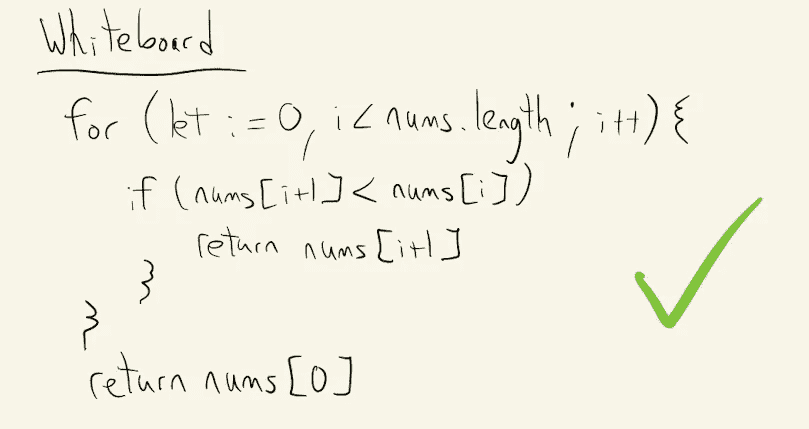 Whiteboard
for (let i = 0, i < nums.length ; i++) {
if (nums[i+1] < nums[i])
return nums [i+1]
}
}
return nums [0]